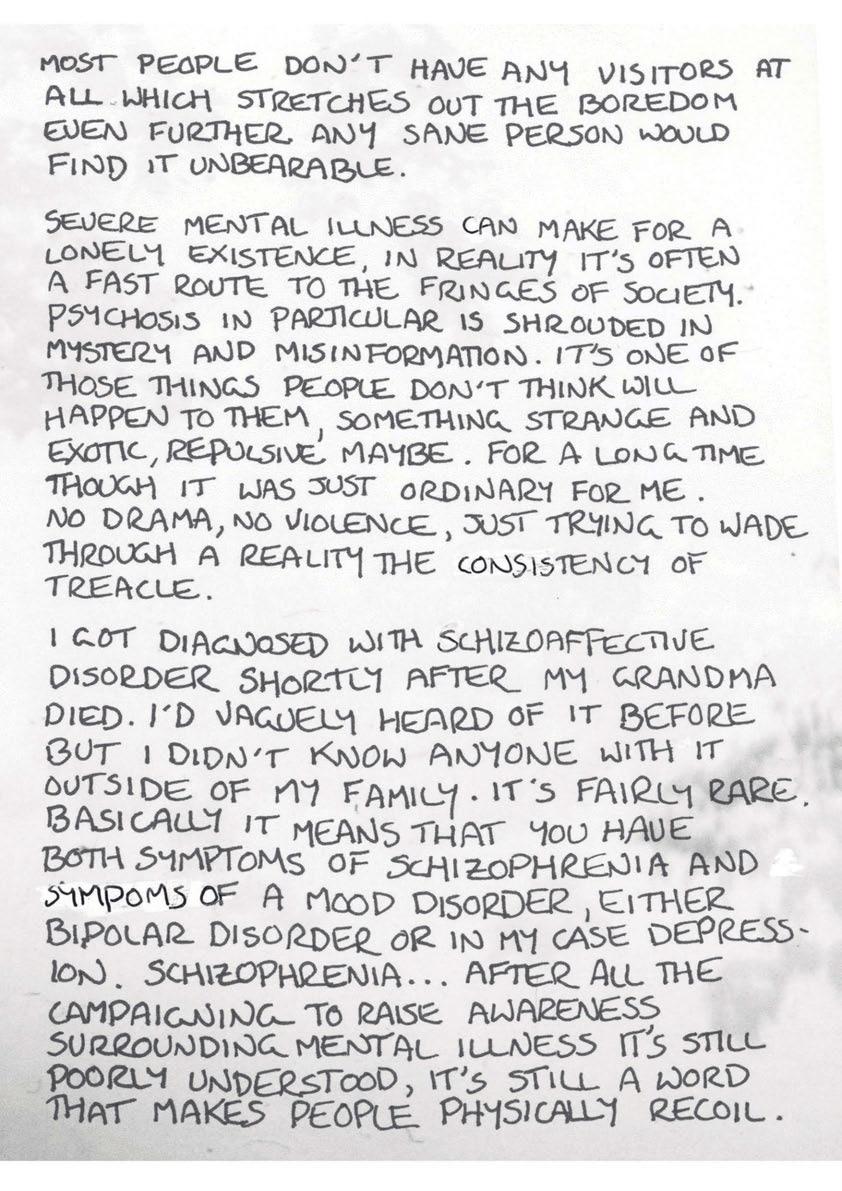 MOST PEOPLE DON'T HAVE ANY VISITORS AT
ALL WHICH STRETCHES OUT THE BOREDOM
EVEN FURTHER. ANY SANE PERSON WOULD
FIND IT UNBEARABLE.
SEVERE MENTAL ILLNESS CAN MAKE FOR A
LONELY EXISTENCE, IN REALITY IT'S OFTEN
A FAST ROUTE TO THE FRINGES OF SOCIETY.
PSYCHOSIS IN PARTICULAR IS SHROUDED IN
MYSTERY AND MISINFORMATION. IT'S ONE OF
THOSE THINGS PEOPLE DON'T THINK WILL
HAPPEN TO THEM, SOMETHING STRANGE AND
EXOTIC, REPULSIVE MAYBE. FOR A LONG TIME
THOUGH IT WAS JUST ORDINARY FOR ME.
NO DRAMA, NO VIOLENCE, JUST TRYING TO WADE
THROUGH A REALITY THE CONSISTENCY OF
TREACLE.
I GOT DIAGNOSED WITH SCHIZOAFFECTIVE
DISORDER SHORTLY AFTER MY GRANDMA
DIED. I'D VAGUELY HEARD OF IT BEFORE
BUT I DIDN'T KNOW ANYONE WITH IT
OUTSIDE OF MY FAMILY. IT'S FAIRLY RARE.
BASICALLY IT MEANS THAT YOU HAVE
BOTH SYMPTOMS OF SCHIZOPHRENIA AND
SYMPOMS OF A MOOD DISORDER, EITHER
BIPOLAR DISORDER OR IN MY CASE DEPRESS-
ION. SCHIZOPHRENIA... AFTER ALL THE
CAMPAIGNING TO RAISE AWARENESS
SURROUNDING MENTAL ILLNESS IT'S STILL
POORLY UNDERSTOOD, IT'S STILL A WORD
THAT MAKES PEOPLE PHYSICALLY RECOIL.